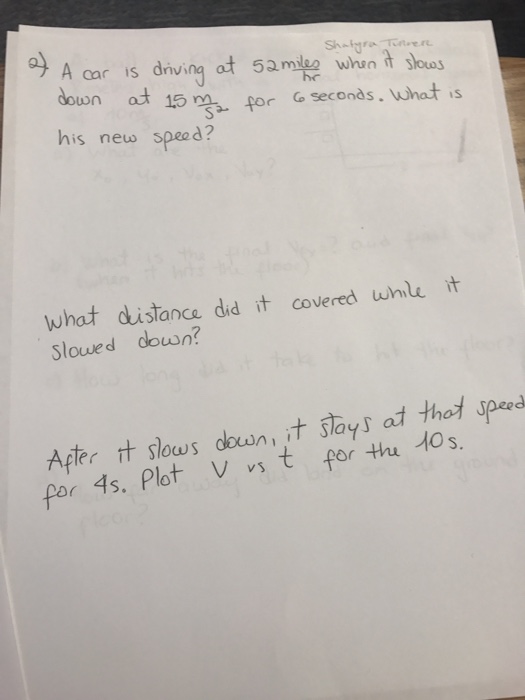 2) A car is driving at 52 miles/hr when it slows
down at 1.5 m/s² for 6 seconds. What is
his new speed?
What distance did it covered while it
slowed down?
After it slows down, it stays at that speed
for 4s. Plot V vs t for the 10s.